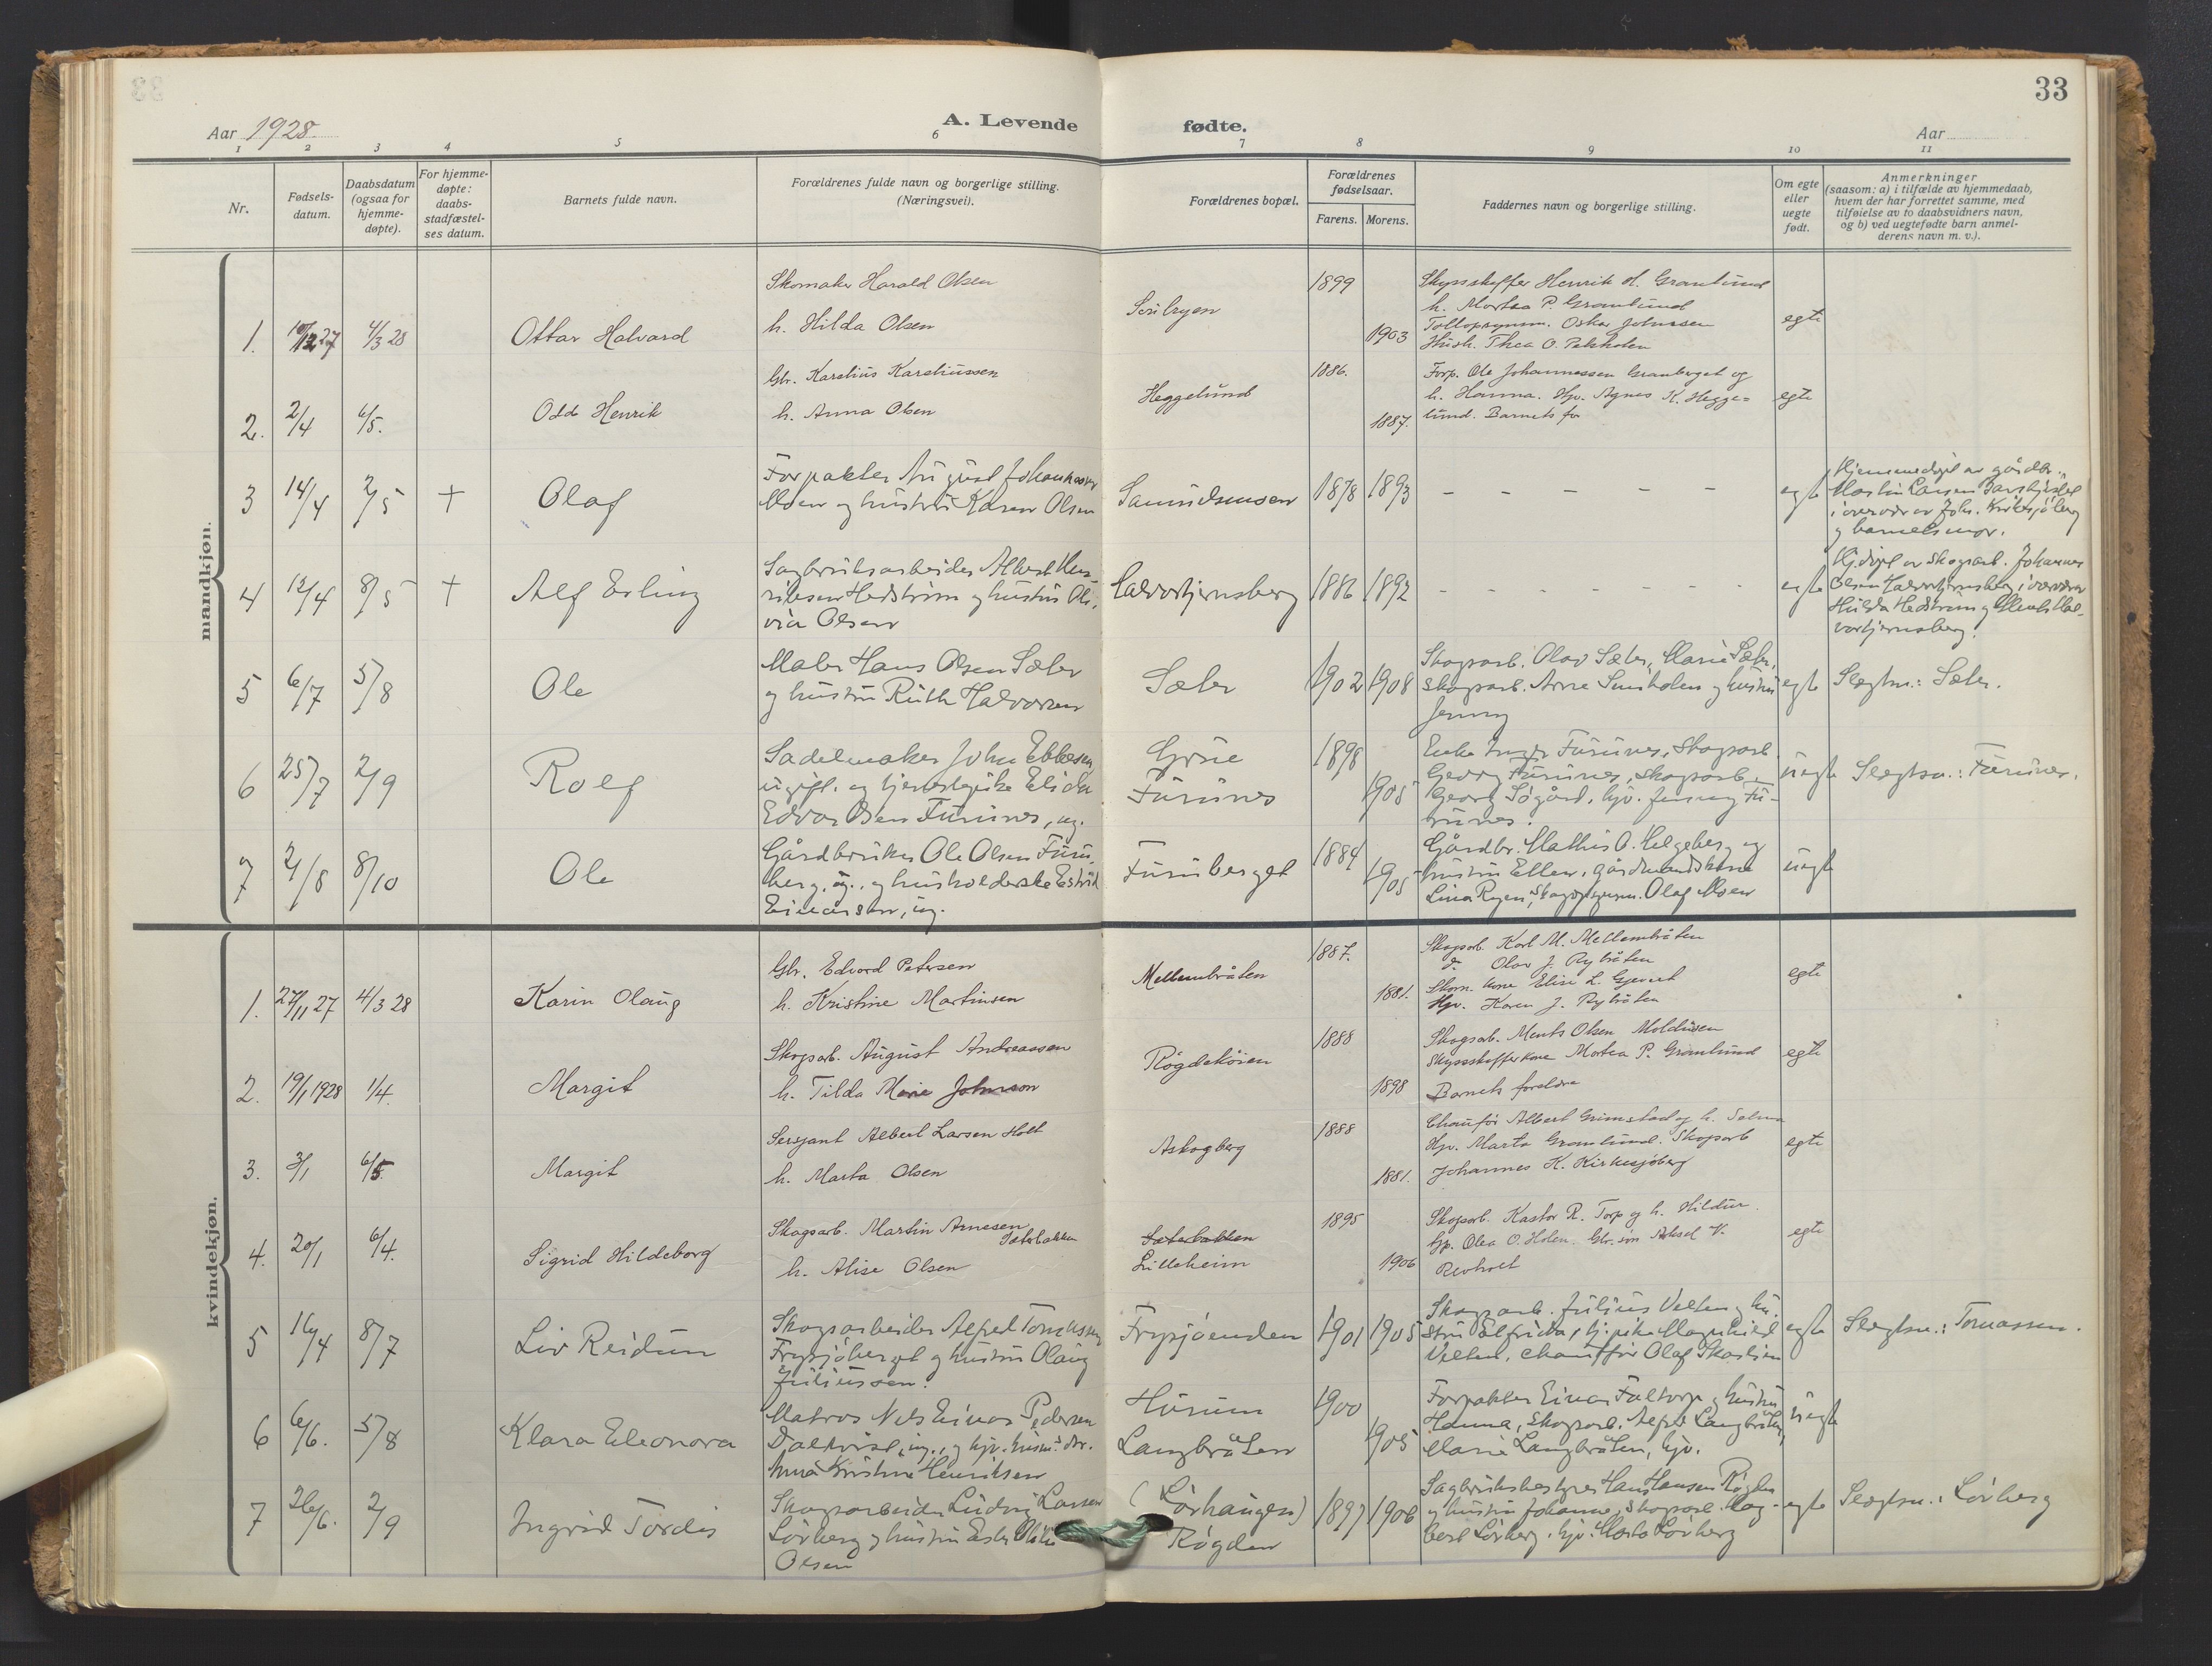 33
Aar 1928.
A. Levende fødte.
Aar
1 2 3 4 5 6 7 8 9 10 11
Nr.
Fødsels-
datum.
Daabsdatum
(ogsaa for
hjemme-
døpte).
For hjemme-
døpte:
daabs-
stadfæstel-
ses datum.
Barnets fulde navn.
Forældrenes fulde navn og borgerlige stilling.
(Næringsvei).
Forældrenes bopæl.
Forældrenes
fødselsaar.
Farens. Morens.
Faddernes navn og borgerlige stilling.
Om egte
eller
uegte
født.
Anmerkninger
(saasom: a) i tilfælde av hjemmedaab,
hvem der har forrettet samme, med
tilføielse av to daabsvidners navn,
og b) ved uegtefødte barn anmel-
derens navn m. v.).
mandkjøn.
1. 10/12 27 4/3 28 Ottar Halvard
Skomaker Harald Olsen
h. Hilda Olsen
1899
1903
Skysskaffer Henrik H. Granlund
h. Martea P. Granlund
Oskar Johnssen
Hush. Thea O.
egte
2. 2/4 6/5. Odd Henrik
Gbr. Karelius Kareliussen
h. Anna Olsen
Heggelund
1886.
1887.
Forp. Ole Johannessen Granberget og
h. Hanna. Hpv. Agnes K. Hegge=
lund. Barnets far
egte
3 14/4 2/5 + Olaf
Forpakter August Johannessen
Moen og hustru Karen Olsen
1878 1893
– – – – – –
egte
Hjemmedøpt av gårdbr.
Martin Larsen
i overvær av Joh. Kirkesjøberg
og barnets mor.
4 12/4 8/5 + Alf Erling
Sagbruksarbeider Albert Hen-
riksen Hedstrøm og hustru Oli-
via Olsen
Halvortjernsberg
1886 1892
– – – – – –
egte
Hj.døpt av skogsarb. Johannes
Olsen Halvortjernsberg i overvær
Hulda Hedstrøm og Hal-
vortjernsberg.
5 6/7 5/8 Ole
Maler Hans Olsen Sæter
og hustru Ruth Halvorsen
Sæter
1902 1908
Skogsarb. Olav Sæter, Marie Sæter,
skogsarb. Arne og hustru
Jenny
egte
Slegtsn.: Sæter.
6 25/7 2/9 Rolf
Sadelmaker John Ebbesen,
ugift. og tjenestepike Elida
Edvardsen Furunes, ug.
Grue
Furunes
1898
1905
Enke Inger Furunes, skogsarb.
Georg Furunes, skogsarb.
Georg Søgård, hjv. Jenny Fu-
runes.
uegte
Slegtsn.: Furunes.
7 2/8 8/10 Ole
Gårdbruker Ole Olsen Furu-
berg, ug., og husholderske Estrid
Einarsen, ug.
Furuberget
1884
1905
Gårdbr. Mathis O. Helgeberg og
hustru Ellen, gårdmandskone
Lina Ryen, skogopsynsm. Olaf Moen
uegte
kvindekjøn.
1. 27/11 27 4/3 28 Karin Olaug
Gbr. Edvard Petersen
h. Kristine Martinsen
Mellembråten
1887.
1881.
Skogsarb. Karl M. Mellembråten
d. Olav J. Rybråten
Skom. kone Elise L.
Hpv. Karen J. Rybråten
egte
2. 19/1 1928 1/4. Margit
Skogsarb. August Andreassen
h. Tilda Marie Johnson
Røgdekøien
1888
1898
Skogsarb. Ments Olsen Moldusen
Skysskafferkone Martea P. Granlund
Barnets foreldre
egte
3. 3/1 6/5. Margit
Sersjant Albert Larsen Holt
h. Marta Olsen
Askogberg
1888
1881.
Chaufør Albert Grimstad og h. Selma
Hpv. Marta Granlund. Skogsarb
Johannes K. Kirkesjøberg
egte
4. 20/1 6/4. Sigrid Hildeborg
Skogsarb. Martin Arnesen
Sæterbakken
h. Alise Olsen
Sæterbakken
Lilleheim
1895
1906
Skogsarb. Kastor R. Torp og h. Hildur.
Gp. Olea O. Holen. Gbr. søn Aksel K.
Revholt
egte
5 16/4 8/7 Liv Reidun
Skogsarbeider Alfred Tomassen
Frysjøberget og hustru Olaug
Juliussen.
Frysjøenden
1901 1905
Skogsarb. Julius Velten og hu-
stru Elfrida, tj.pike Magnhild
Velten, chauffør Olaf Skaslien
egte
Slegtsn.: Tomassen.
6 6/6. 5/8 Klara Eleonora
Matros Nils Einar Pedersen
Dalkvist, ug., og hjv. husm. dtr.
Anna Kristine Henriksen
Hurum
Langbråten
1900
1905
Forpakter Einar Faltorp og hustru
Hanna, skogsarb. Alfred Langbråten,
Marie Langbråten, hjv.
uegte
7 26/6. 2/9 Ingrid Tordis
Skogsarbeider Ludvig Larsen
Lørberg og hustru Ester
Olsen
(Lørhaugen)
Røgden
1897 1906
Sagbruksbestyrer Hans Hansen Røgden
og hustru Johanne, skogsarb. Dag-
bert Lørberg. hjv. Marta Lørberg
egte
Slegtsn.: Lørberg